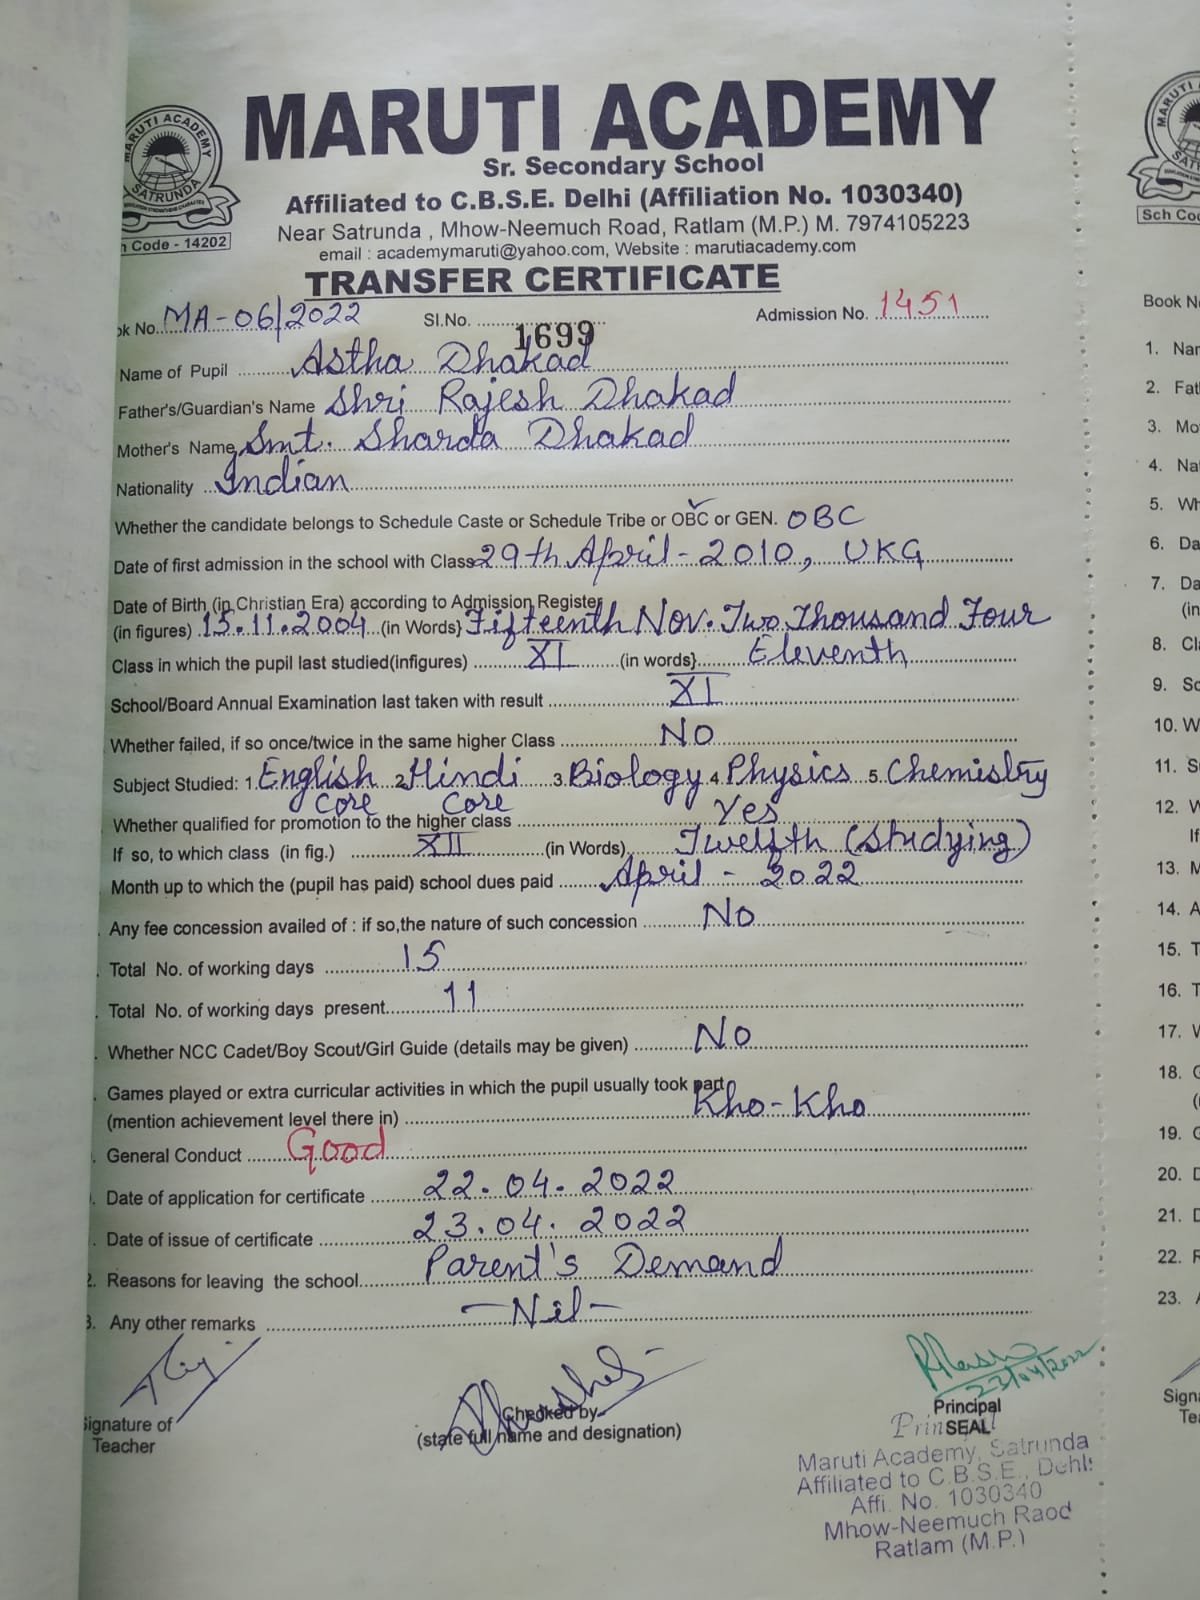 MARUTI ACADEMY
Sr. Secondary School
Affiliated to C.B.S.E. Delhi (Affiliation No. 1030340)
Near Satrunda , Mhow-Neemuch Road, Ratlam (M.P.) M. 7974105223
email : academymaruti@yahoo.com, Website : marutiacademy.com
MARUTI ACADEMY
SATRUNDA
Code - 14202
TRANSFER CERTIFICATE
ok No. MA-06/2022 Sl.No. 1699 Admission No. 1451
Name of Pupil Astha Dhakad
Father's/Guardian's Name Shri Rajesh Dhakad
Mother's Name Smt. Sharda Dhakad
Nationality Indian
Whether the candidate belongs to Schedule Caste or Schedule Tribe or OBC or GEN. OBC
Date of first admission in the school with Class 29th April-2010, UKG
Date of Birth (in Christian Era) according to Admission Register
(in figures) 15.11.2004 (in Words} Fifteenth Nov. Two Thousand Four
Class in which the pupil last studied(infigures) XI (in words} Eleventh
School/Board Annual Examination last taken with result XI
Whether failed, if so once/twice in the same higher Class No
Subject Studied: 1. English 2. Hindi 3. Biology 4. Physics 5. Chemistry
Core Core
Whether qualified for promotion to the higher class Yes
If so, to which class (in fig.) XII (in Words) Twelfth (Studying)
Month up to which the (pupil has paid) school dues paid April - 2022
Any fee concession availed of : if so,the nature of such concession No
Total No. of working days 15
Total No. of working days present 11
Whether NCC Cadet/Boy Scout/Girl Guide (details may be given) No
Games played or extra curricular activities in which the pupil usually took part
(mention achievement level there in) Kho-Kho
General Conduct Good
Date of application for certificate 22.04.2022
Date of issue of certificate 23.04.2022
2. Reasons for leaving the school Parent's Demand
3. Any other remarks -Nil-
23/04/2022
ignature of
Teacher
Checked by
(state full name and designation)
Principal
SEAL
Maruti Academy, Satrunda
Affiliated to C.B.S.E., Dehli
Affi. No. 1030340
Mhow-Neemuch Raod
Ratlam (M.P.)
Sch Co
Book N
1. Nar
2. Fat
3. Mo
4. Nat
5. Wh
6. Da
7. Da
(in
8. Cl
9. Sc
10. W
11. S
12. W
If
13. M
14. A
15. T
16. T
17. W
18. G
(
19. G
20. D
21. D
22. R
23. A
Signa
Te